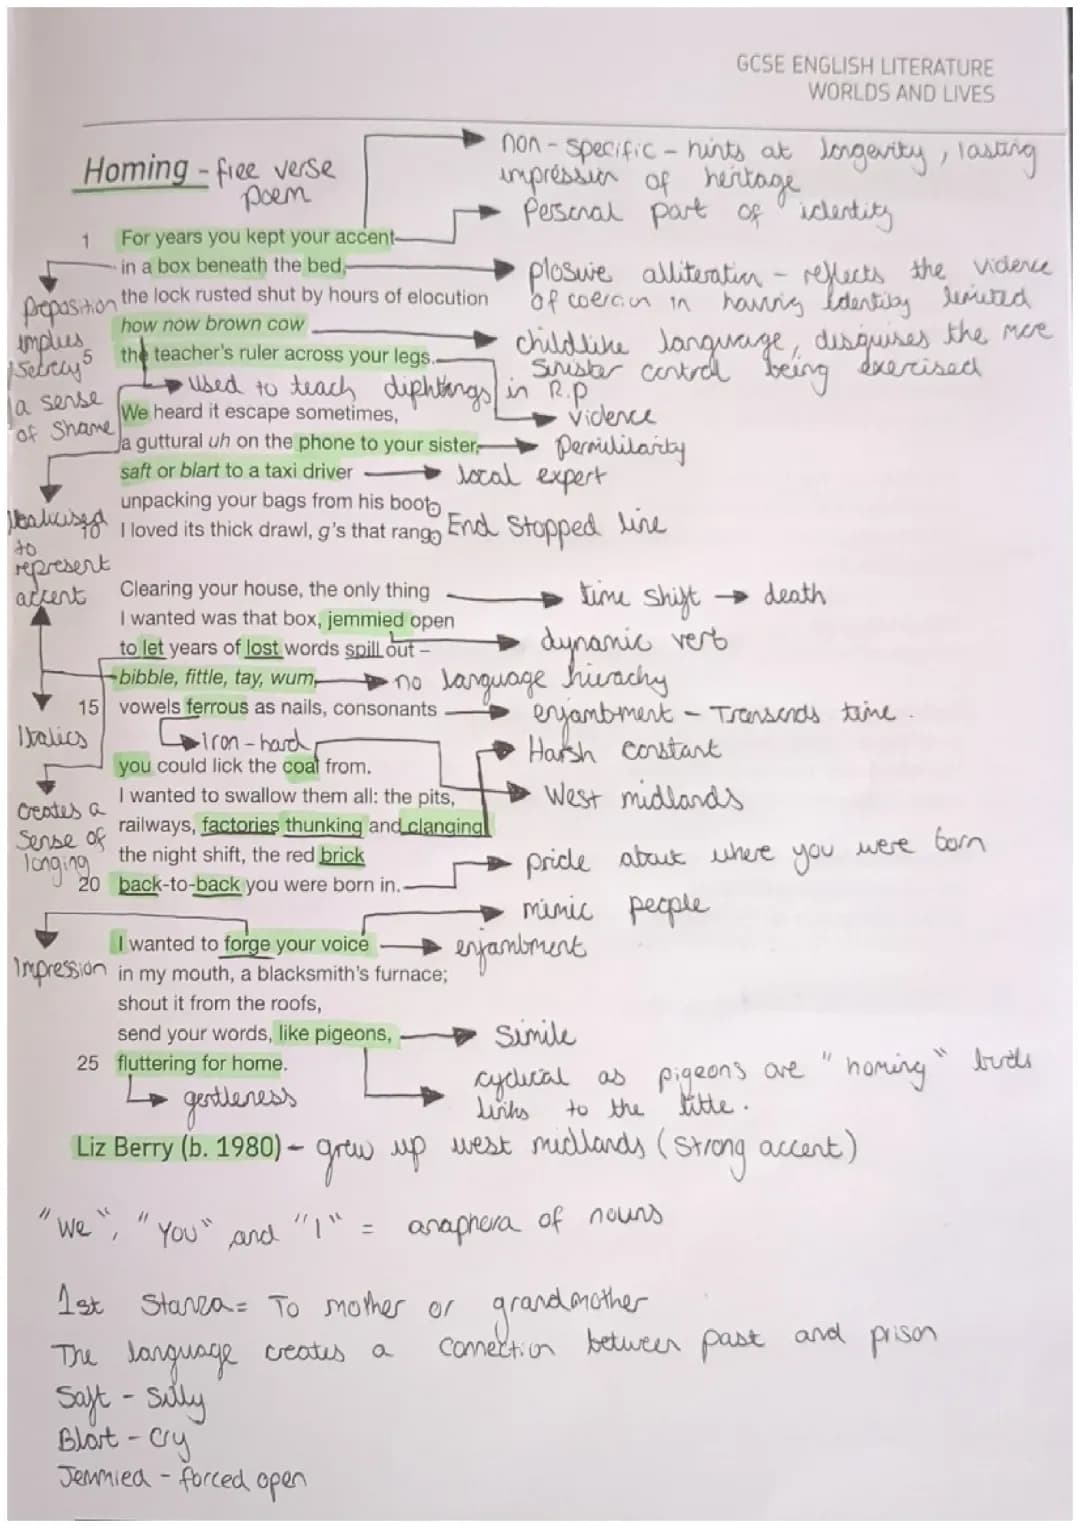 GCSE ENGLISH LITERATURE
WORLDS AND LIVES
Homing - free verse
poem
non-specific - hints at longevity, lasting
impression of heritage
Personal part of identity
1 For years you kept your accent
in a box beneath the bed,
the lock rusted shut by hours of elocution
how now brown cow
5 the teacher's ruler across your legs.
Preposition
implies
secrecy
a sense
of shame
plosive alliteration - reflects the violence
of coercion in having identity limited
childlike language, disguises the more
sinister control being exercised
used to teach dipthongs in R.P
violence
We heard it escape sometimes,
a guttural uh on the phone to your sister,
saft or blart to a taxi driver
unpacking your bags from his boot.
10 I loved its thick drawl, g's that rang.
local expert
End stopped line
Italicised
to
represent
accent
Clearing your house, the only thing
I wanted was that box, jemmied open
to let years of lost words spill out –
bibble, fittle, tay, wum,
15 vowels ferrous as nails, consonants
time shift → death
dynamic verb
no language hierachy
enjambment - Transcends time.
Italics
iron - hard
Harsh constant
West midlands
you could lick the coal from.
I wanted to swallow them all: the pits,
railways, factories thunking and clanging
the night shift, the red brick
20 back-to-back you were born in.
creates a
sense of
longing
pride about where you were born
mimic people
I wanted to forge your voice
in my mouth, a blacksmith's furnace;
shout it from the roofs,
send your words, like pigeons,
25 fluttering for home.
enjambment
Impression
Simile
cyclical as pigeons are "homing" birds
links to the title.
gentleness
Liz Berry (b. 1980) - grew up west midlands (strong accent)
"We", "You" and "I" = anaphora of nouns
1st Stanza = To mother or grandmother
The language creates a connection between past and prison
Saft - Silly
Blart - Cry
Jemmied - forced open